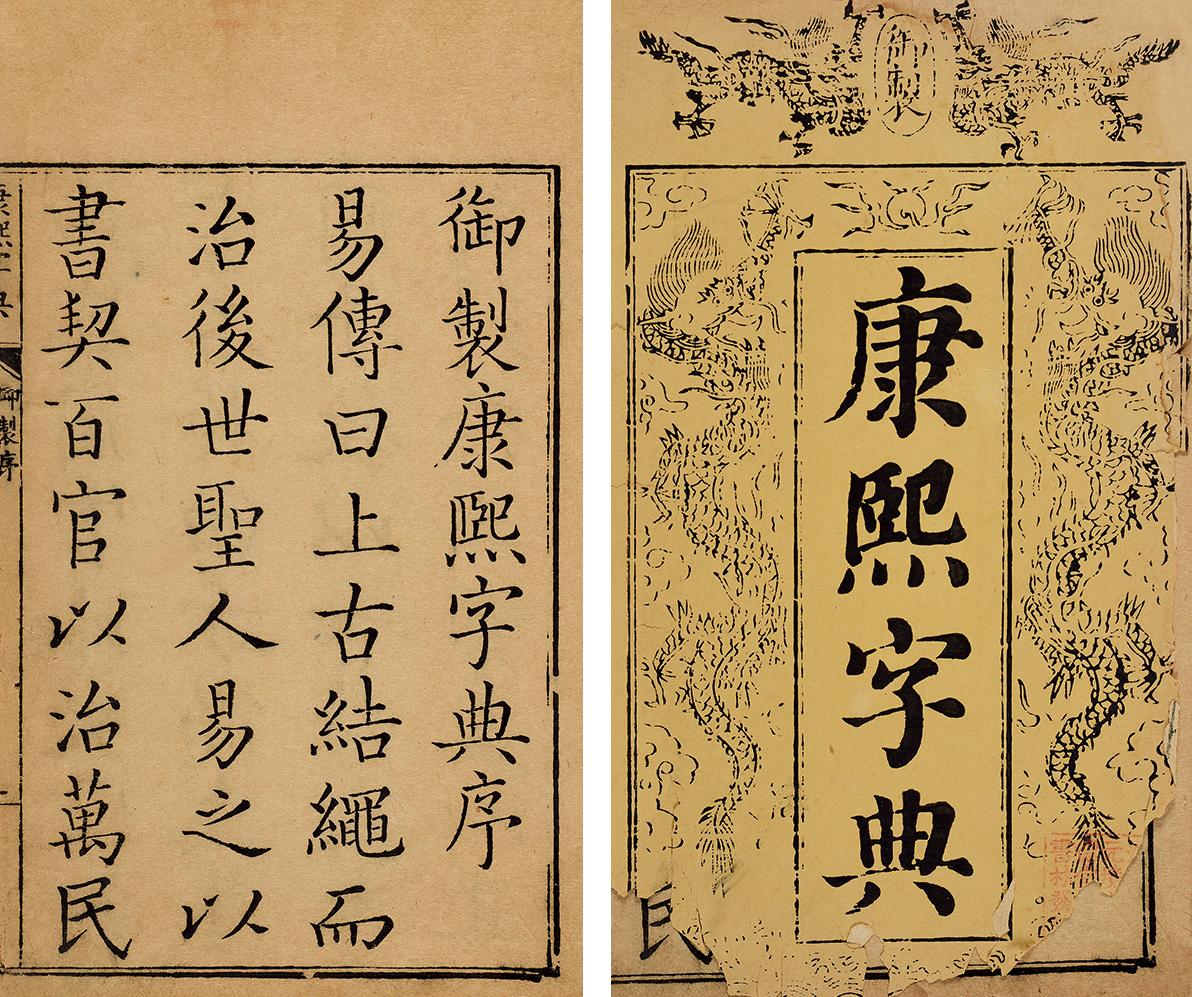 御製
康熙字典
民
御製康熙字典序
易傳曰上古結繩而
治後世聖人易之以
書契百官以治萬民
康熙字典
御製序